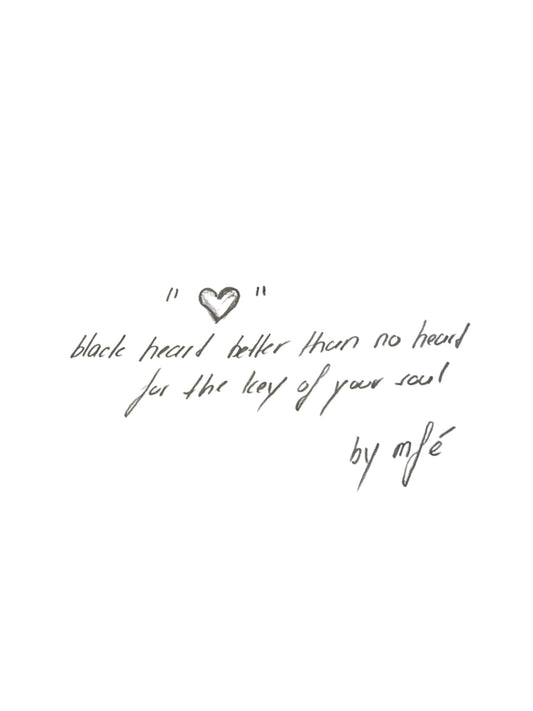 " ♥ "
black heard better than no heard
for the key of your soul
by mfé